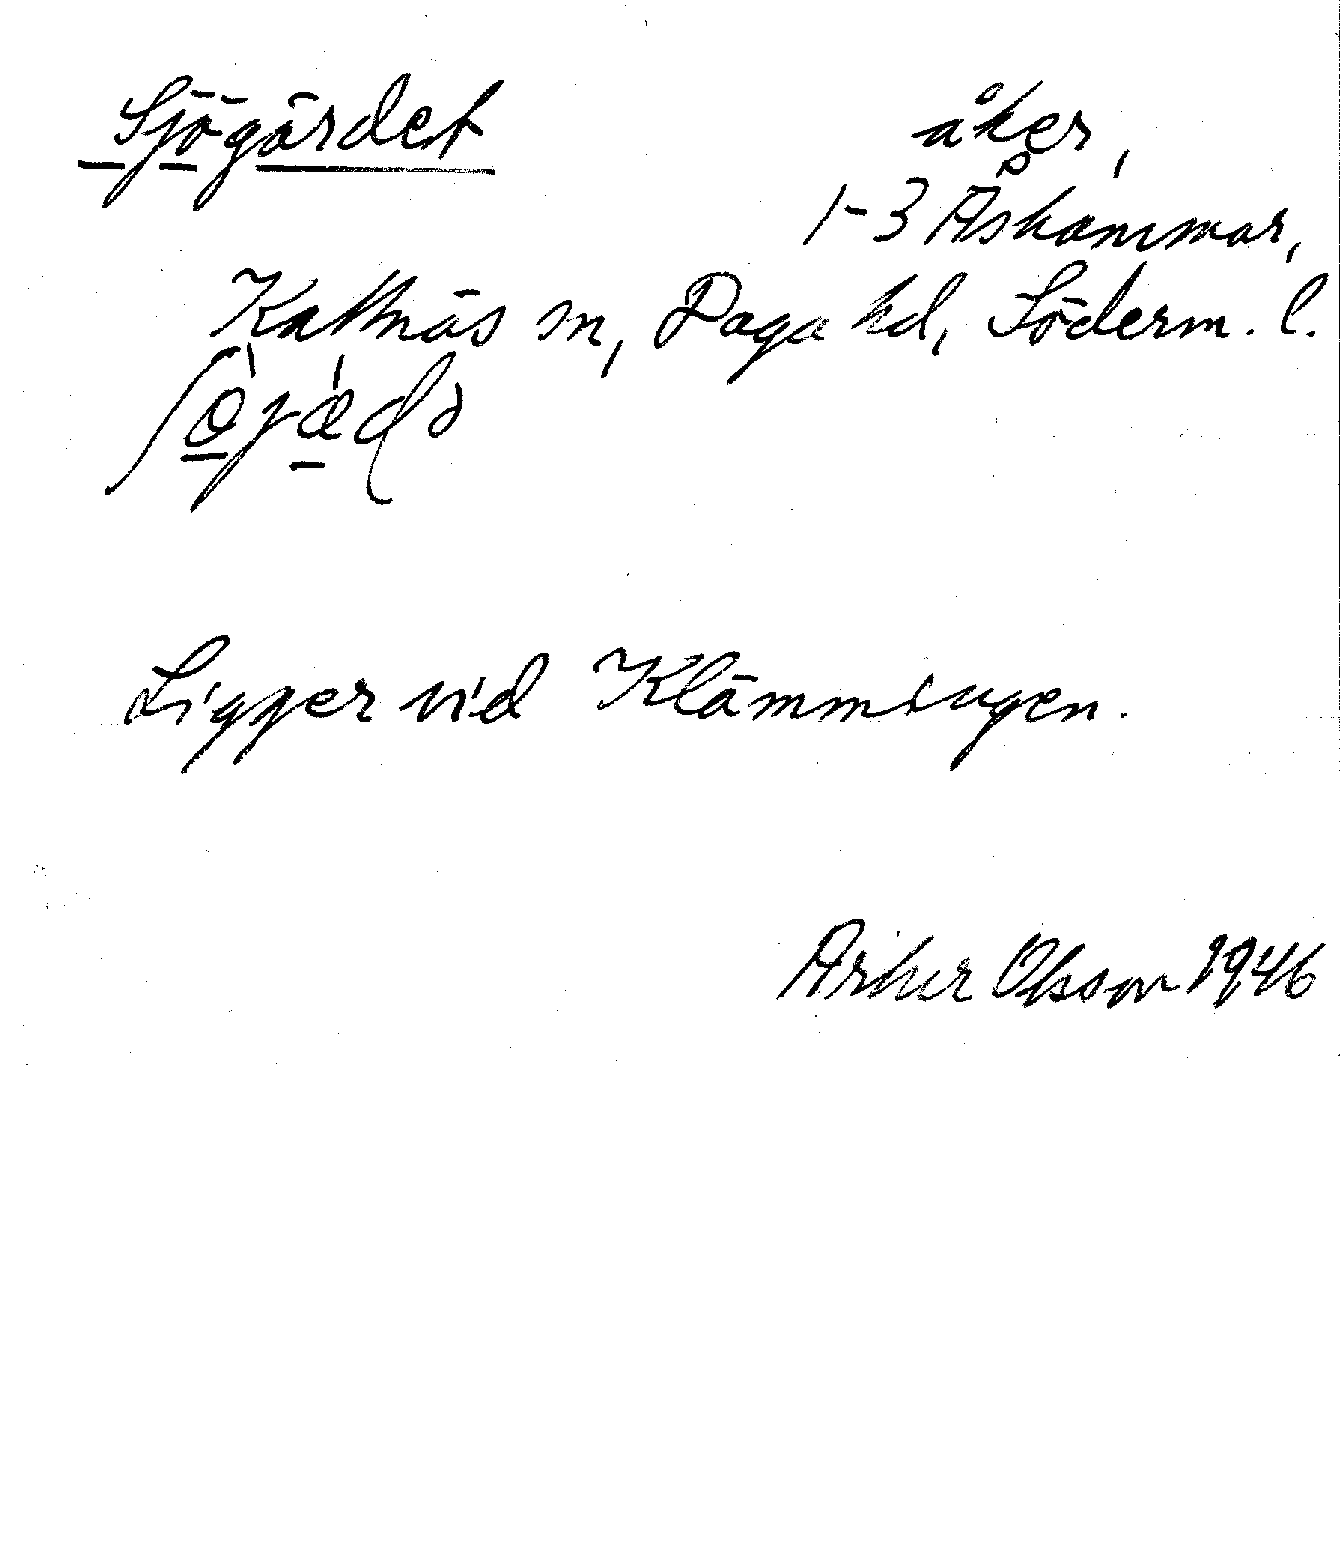 Sjögärdet åker,
1-3 Åshammar,
Kattnäs sn, Daga hd, Söderm. l.
Ligger vid Klämmingen.
Artur Olsson 1946